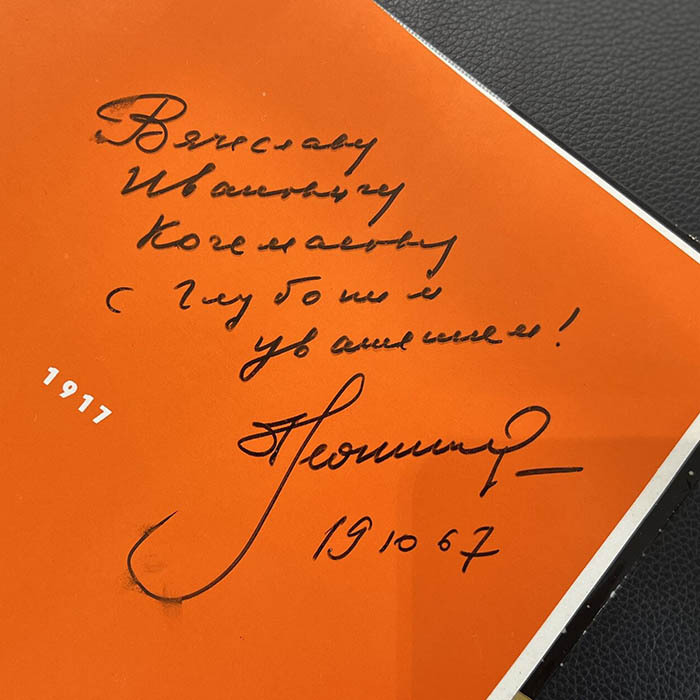 Вячеславу
Ивановичу
Кочемасову
с глубоким
уважением!
1917
19 10 67